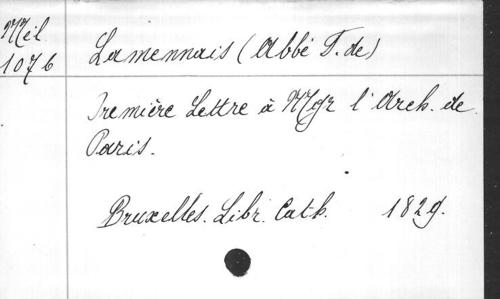 Mél
1076
Lamennais (Abbé F. de)
Première Lettre à Mgr l'Arch. de
Paris.
Bruxelles. Libr. Cath. 1829.